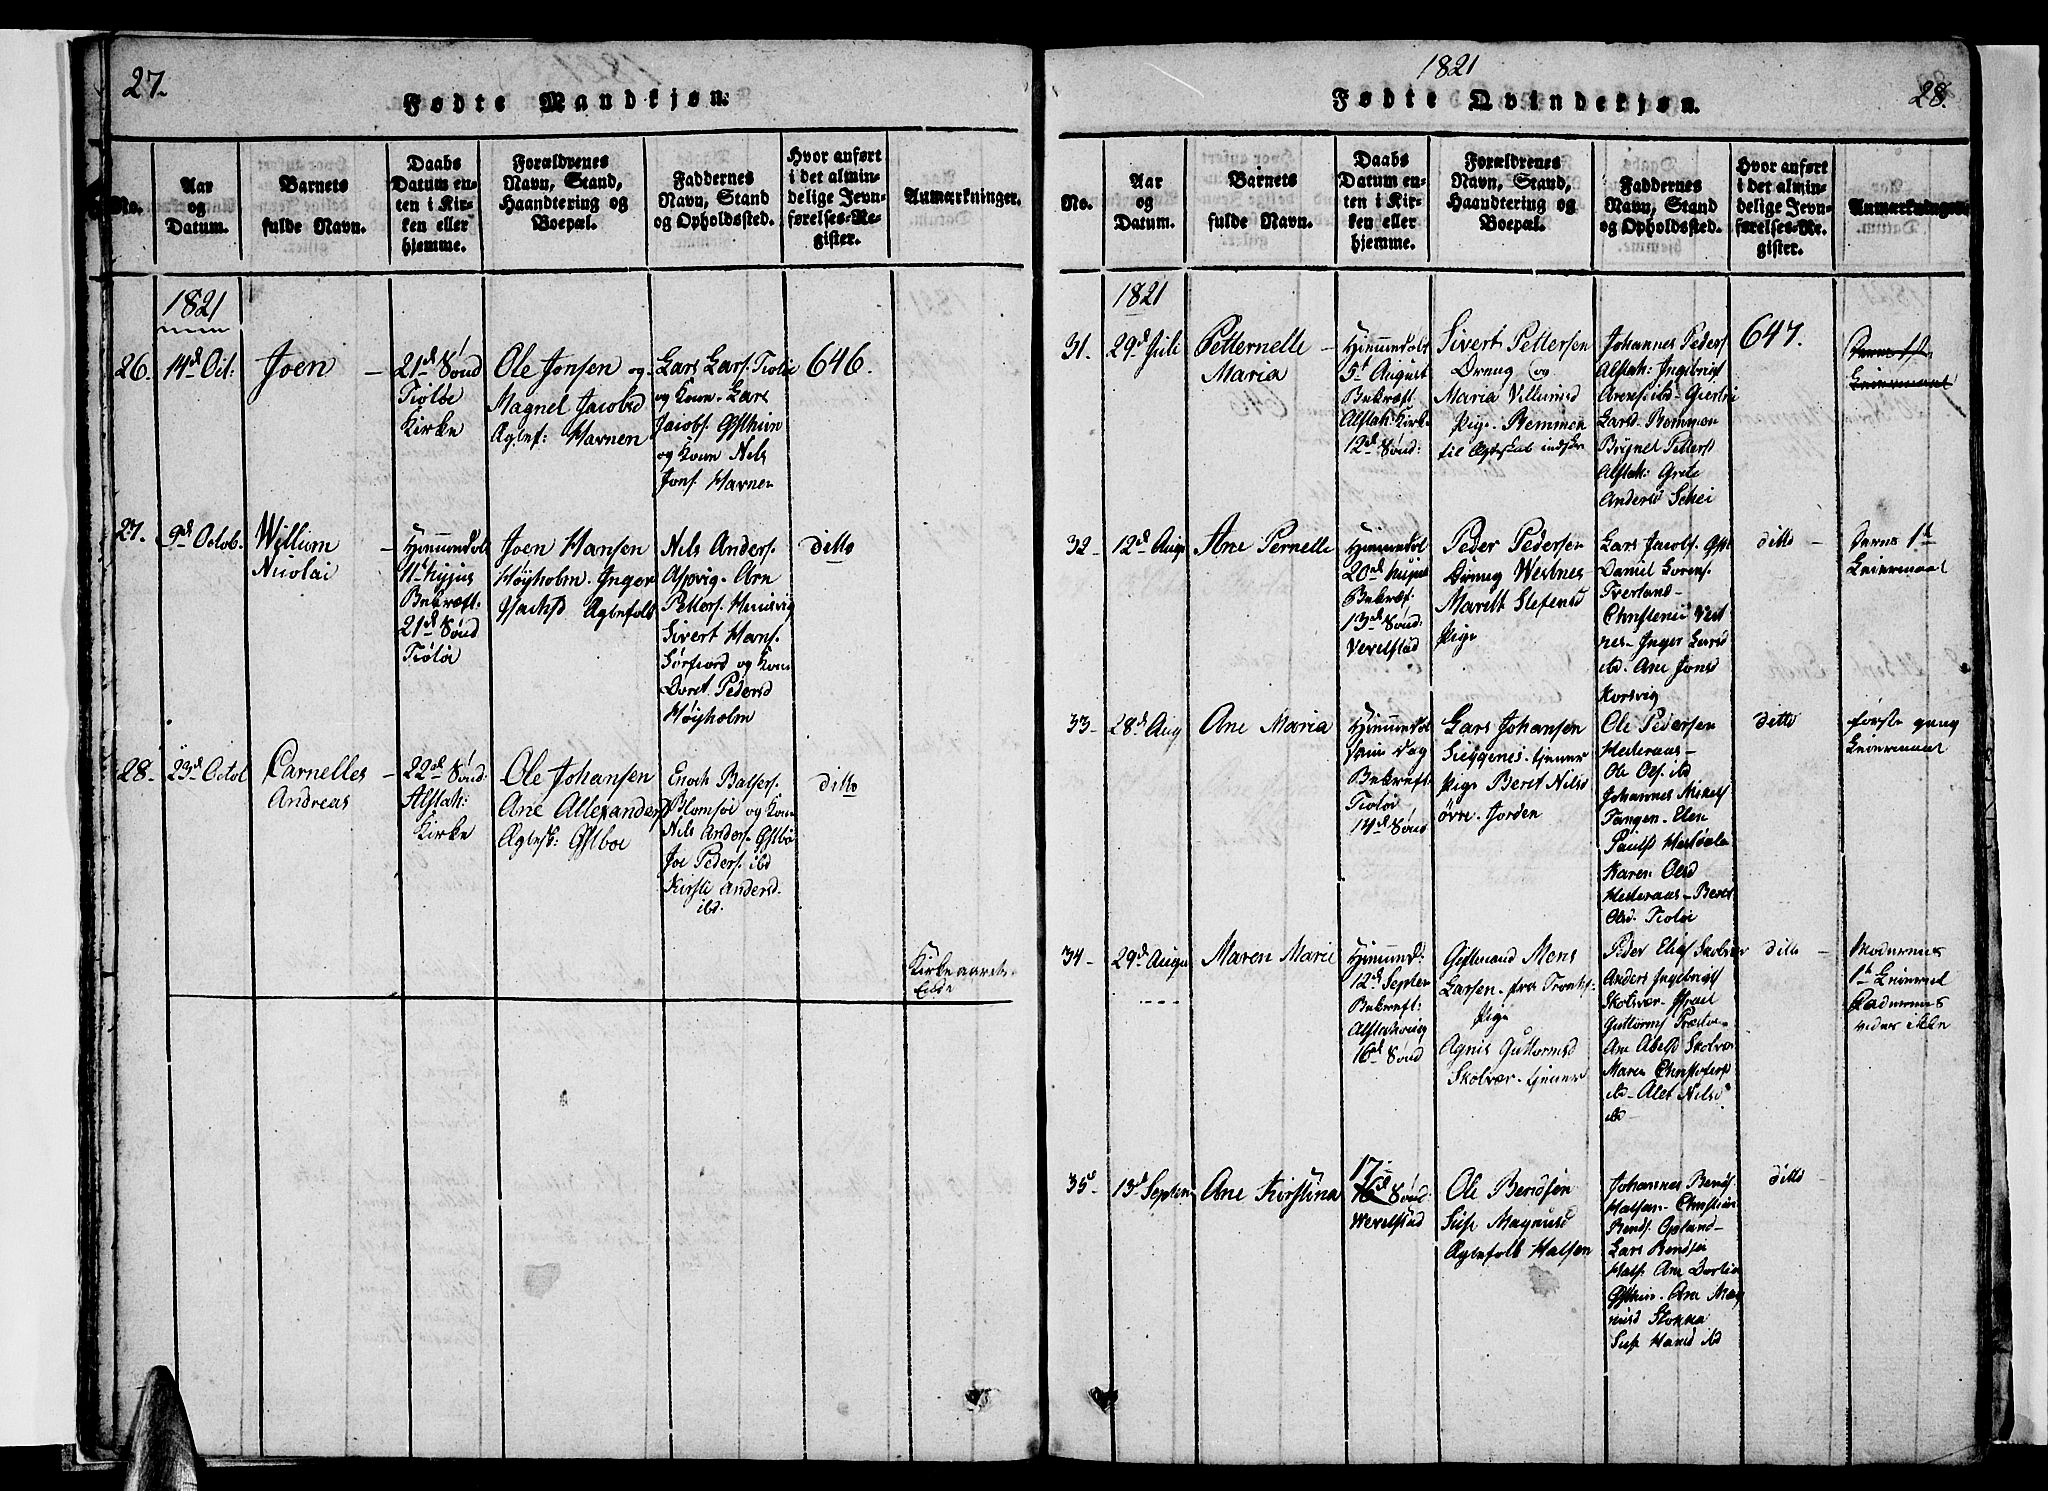 27.
Fødte Mandkjøn.
No.
Aar
og
Datum.
Barnets
fulde Navn.
Daabs
Datum en-
ten i Kir-
ken eller
hjemme.
Forældrenes
Navn, Stand,
Haandtering og
Boepæl.
Faddernes
Navn, Stand
og Opholdssted.
Hvor anført
i det almin-
delige Jevn-
førelses-Re-
gister.
Anmærkninger.
1821
26.
14d Oct:
Joen
21d Sønd
Tiøløe
Kirke
Ole Jonsen og
Magnel Jacobsd
Ægtef: Havnen
Lars Lars. Tiøløe
og Kone. Lars
Jacobs. Østhun
og Kone Nils
Jons. Havnen
646.
27.
9d Octob.
Willum
Nicolai
Hjemmedøbt
Bekræft.
21d Sønd
Tiøløe
Joen Hansen
Høyholm. Inger
Isachsd Ægtefolk
Nils Anders.
Aspvig. Arn
Petters.
Sivert Hans.
Sørfiord og Kone
Doret Pedersd
Høyholm
ditto
28.
23d Octob
Carnelles
Andreas
22d Sønd.
Alstah:
Kirke
Ole Johansen
Ane Allexandersd
Ægtesk: Østboe
Enoch Balsers.
Blomsøe og Kone
Nils Anders. Østbo
Joe Peders. ibd
Kirsti Andersd.
ibd.
ditto
Kirkeaarets
Ende
1821
28.
Fødte Qvindekjøn.
No.
Aar
og
Datum.
Barnets
fulde Navn.
Daabs
Datum en-
ten i Kir-
ken eller
hjemme.
Foreldrenes
Navn, Stand,
Haandtering og
Boepæl.
Faddernes
Navn, Stand
og Opholdssted.
Hvor anført
i det almin-
delige Jevn-
førelses-Re-
gister.
Anmærkninger.
1821
31.
29d Juli
Petternelle
Maria
Hjemmedøbt
5t August
Bekræft
Alstah: Kirke
12d Sønd:
Sivert Pettersen
Dreng og
Maria Villumsd
Pige. Remmen
til Ægteskab indskr
Johannes Peders
Alstah: Ingebrigt
Arens. ibd - Giertru
Larsd. Remmen
Brynel Petters
Alstah: Grete
Andersd Schei
647.
Leiermaal
32
12d Aug
Ane Pernelle
Hjemmedøbt
20d August
Bekræf:
13d Sønd:
Vevelstad
Peder Pedersen
Dreng Westnes
Marett Stefensd
Pige
Lars Jacobs.
Daniel Sorens.
Tverland -
Christence Vest
nes - Inger Larsd
ibd. Ane Jonsd
Korsvig
ditto
Deres 1te
Leiermaal
33
28d Aug
Ane Maria
Hjemmedøbt
samme Dag
Bekræft:
Tiøløe
14d Sønd
Lars Johansen
tjener
Pige Beret Nilsd
øvre Jorden
Ole Pedersen
Hesteraas -
Ole Ols. ibd
Johannes Mikels
Tangen. Elen
Paulsd
Karen Olsd
Hesteraas - Beret
Olsd. Tiøløe
ditto
første gang
Leiermaal
34
29d Augu
Maren Marie
Hjemmed:
12d Septem
Bekræft:
Alstahoug
16d Sønd
Gift mand Mons
Larsen. fra
Pige
Agnis Guttormsd
Skotvær. tjener
Peder Elias Skotvær
Anders Ingebrigts
Skotvær. Israel
Guttorms
Ane Abelsd Skotvær
Maren Christofers
ibd - Alet Nilsd
ibd
ditto
Moderens
1te Leiermaal
Faderens
vides ikke
35
13d Septem
Ane Kirstina
17
16d Sønd:
Wevelstad
Ole Bendsen
Magnusd
Ægtefolk Halsen
Johannes Bends.
Halsen - Christian
Bends. Opland -
Lars Bendsen
Hals. Ane Dortea
Østhun. Ane Mag
nusd Stokka
Hansd ibd
ditto